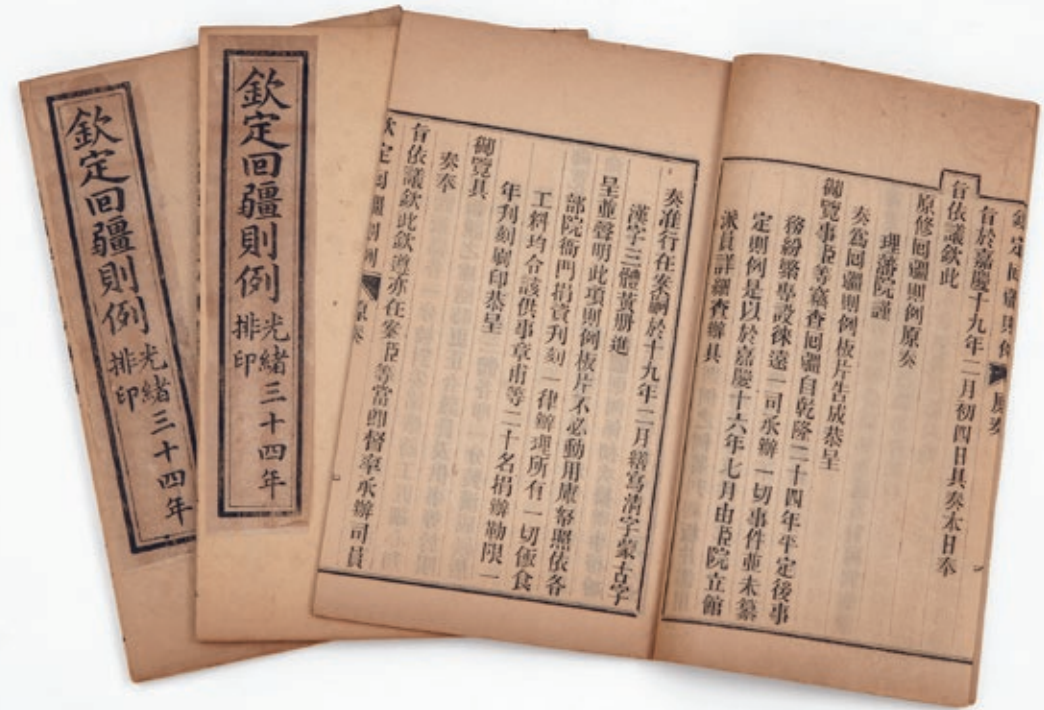 欽定回疆則例
光緒三十四年
排印
欽定回疆則例
光緒三十四年
排印
旨於嘉慶十九年二月初四日具奏本日奉
旨依議欽此
原修回疆則例原奏
理藩院謹
奏爲回疆則例板片告成恭呈
御覽事臣等竊查回疆自乾隆二十四年平定後事
務紛繁專設徠遠一司承辦一切事件並未纂
定則例是以於嘉慶十六年七月由臣院立館
派員詳細查辦具
奏准行在案嗣於十九年二月繕寫清字蒙古字
漢字三體黃册進
呈並聲明此項則例板片不必動用庫帑照依各
部院衙門捐資刊刻一律辦理所有一切飯食
工料均令該供事章甫等二十名捐辦勒限一
年刊刻刷印恭呈
御覽具
奏奉
旨依議欽此欽遵亦在案臣等當卽督率承辦司員
欽定回疆則例 原奏